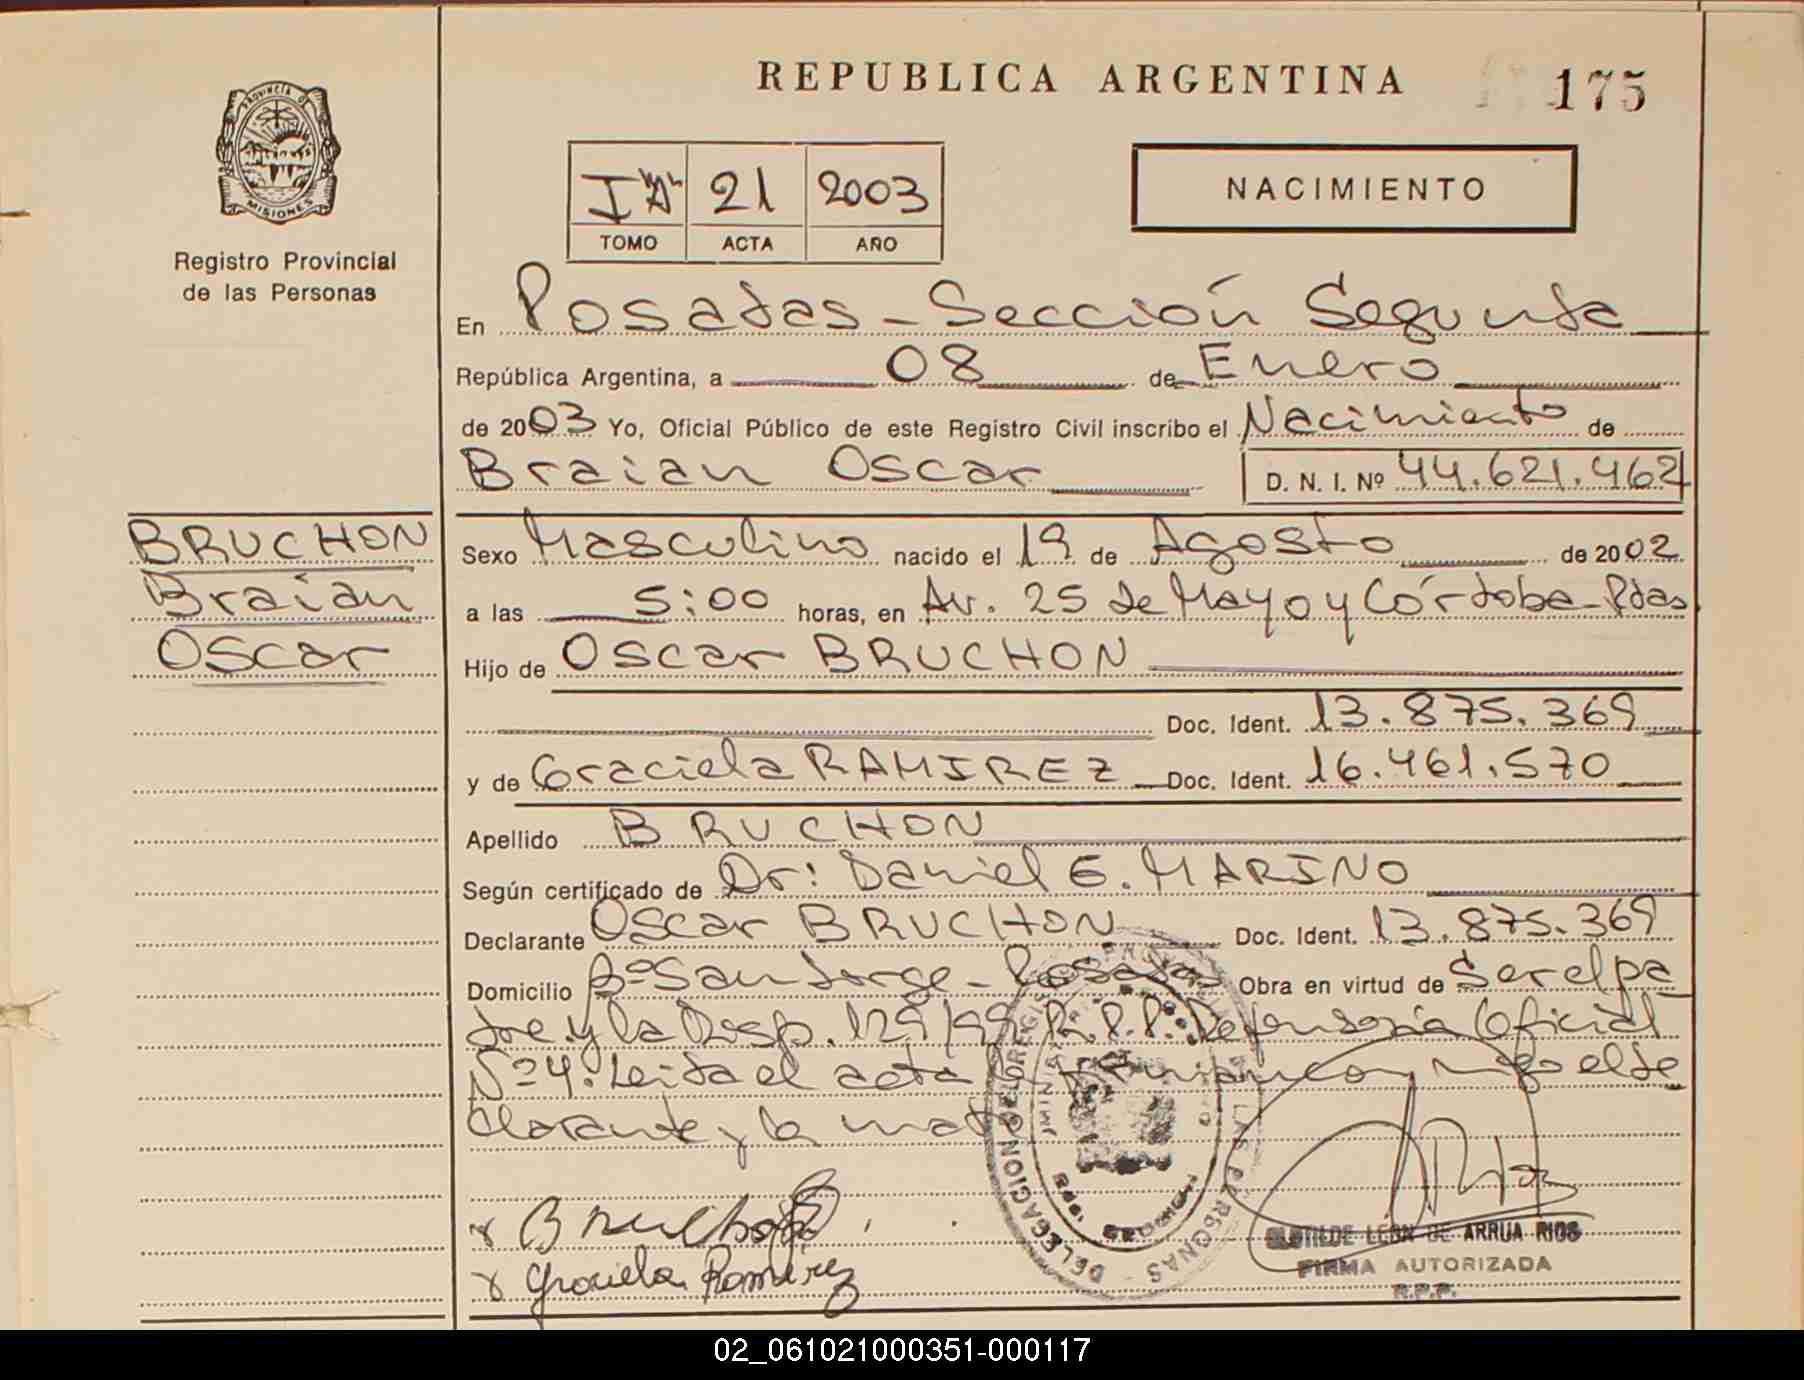 REPUBLICA ARGENTINA
175
PROVINCIA DE
MISIONES
Registro Provincial
de las Personas
I "A" 21 2003
TOMO ACTA AÑO
NACIMIENTO
En Posadas - Sección Segunda
República Argentina, a 08 de Enero
de 2003 Yo, Oficial Público de este Registro Civil inscribo el Nacimiento de
Braian Oscar D. N. I. Nº 44.621.462
BRUCHON
Braian
Oscar
Sexo Masculino nacido el 19 de Agosto de 2002
a las 5:00 horas, en Av. 25 de Mayo y Córdoba - Pdas
Hijo de Oscar BRUCHON
Doc. Ident. 13.875.369
y de Graciela RAMIREZ Doc. Ident. 16.461.570
Apellido BRUCHON
Según certificado de Dr: Daniel E. MARINO
Declarante Oscar BRUCHON Doc. Ident. 13.875.369
Domicilio Bº San Jorge - Posadas Obra en virtud de Ser el pa
dre y la Disp. 129/99 R.P.P. Defensoría Oficial
Nº 4. Leída el acta la el de
clarante y la
Bruchon
Graciela Ramirez
DELEGACION DEL REGISTRO PROVINCIAL DE LAS PERSONAS
CLOTILDE LEON DE ARRUA RIOS
FIRMA AUTORIZADA
R.P.P.
02_061021000351-000117